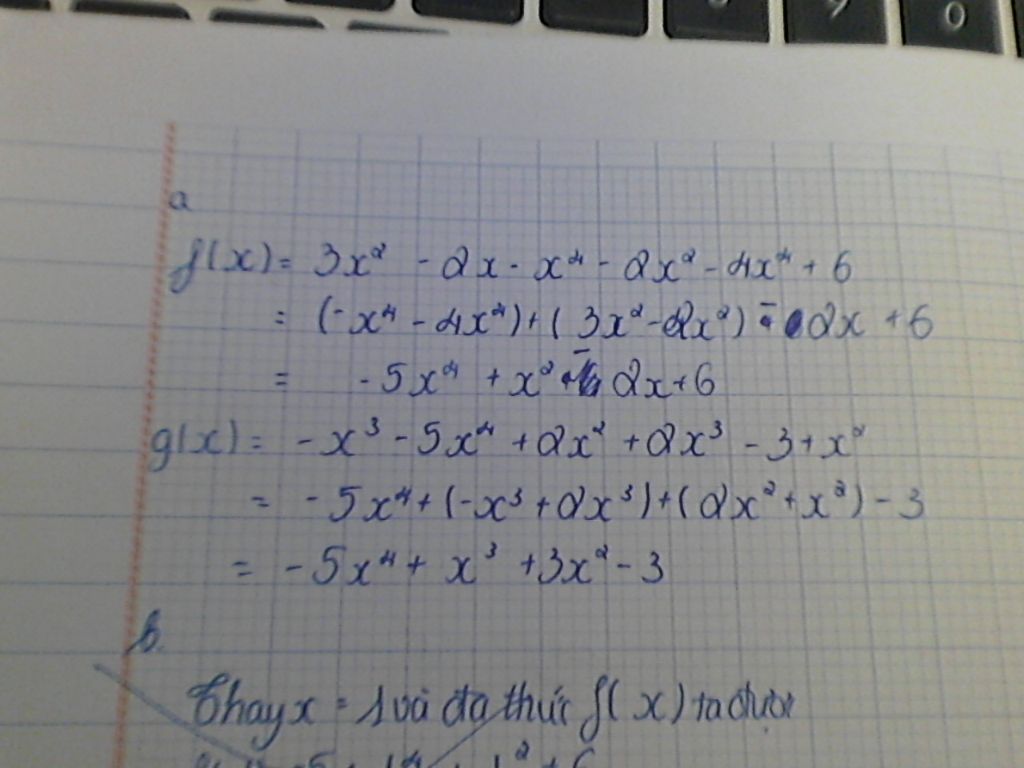 a
f(x) = 3x² - 2x - x⁴ - 2x² - 4x⁴ + 6
= (-x⁴ - 4x⁴) + (3x² - 2x²) - 2x + 6
= -5x⁴ + x² - 2x + 6
g(x) = -x³ - 5x⁴ + 2x² + 2x³ - 3 + x²
= -5x⁴ + (-x³ + 2x³) + (2x² + x²) - 3
= -5x⁴ + x³ + 3x² - 3
b.
Thay x = 1 và đa thức f(x) ta được